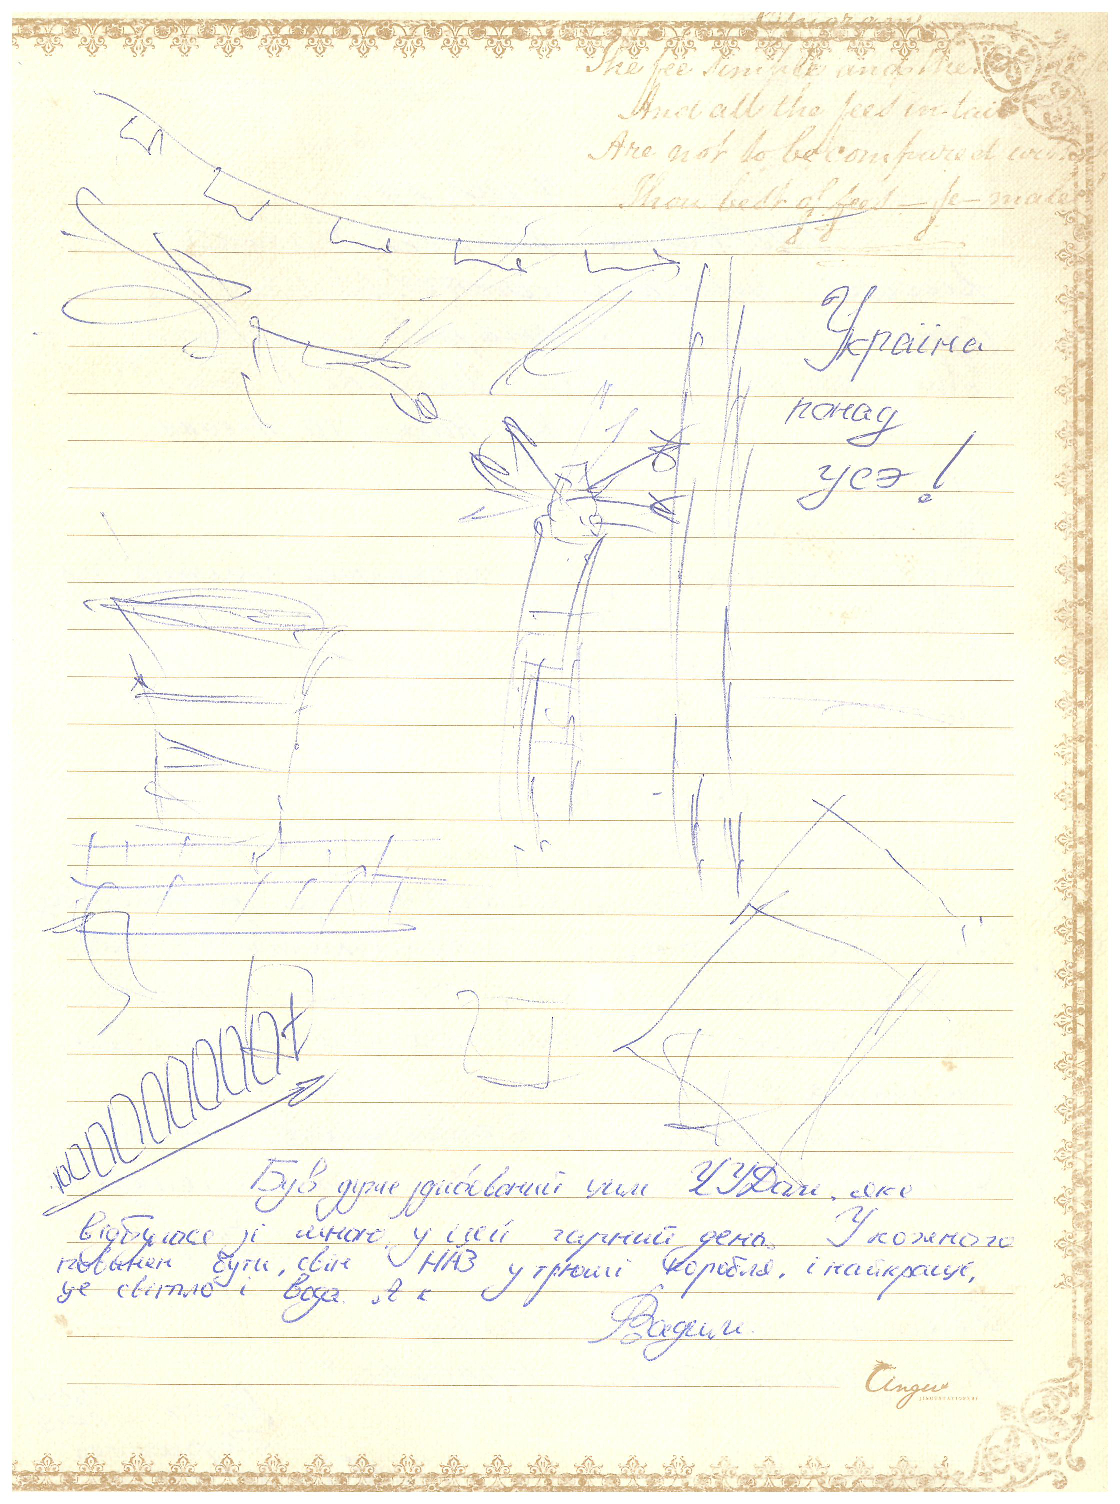 The fee simple and the
And all the fees in tail
Are not to be compared with
Thou best of fees — fe — male
Україна
понад
усэ!
Був дуже здивований цим ЧУДом, яке
відбулося зі мною у цей гарний день. У кожного
повинен бути, свій НАЗ у трюмі корабля, і найкраще,
це світло і вода.
Вадим.